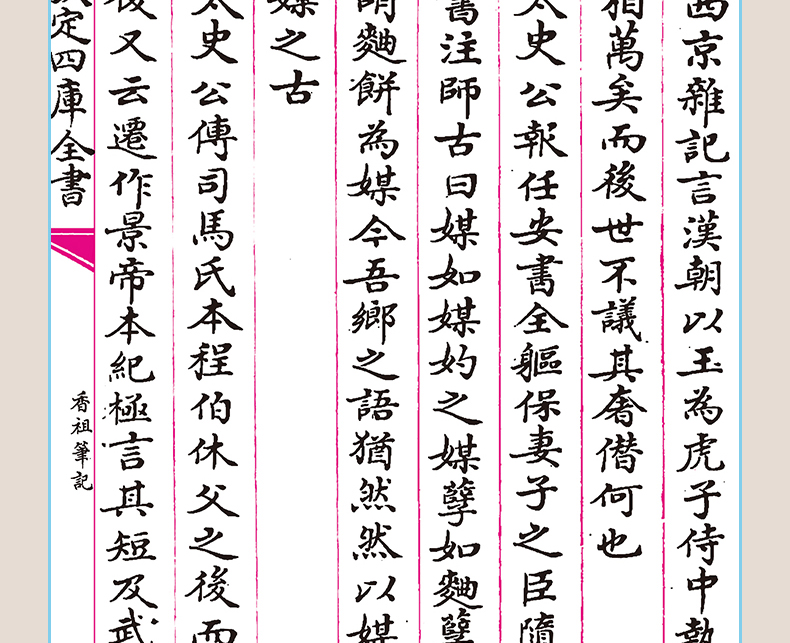 西京雜記言漢朝以玉為虎子侍中執
猶萬矣而後世不議其奢僭何也
太史公報任安書全軀保妻子之臣隨
書注師古曰媒如媒妁之媒孽如麯孽
謂麯餅為媒今吾鄉之語猶然然以媒
媒之古
太史公傳司馬氏本程伯休父之後而
後又云遷作景帝本紀極言其短及武
定四庫全書
香祖筆記